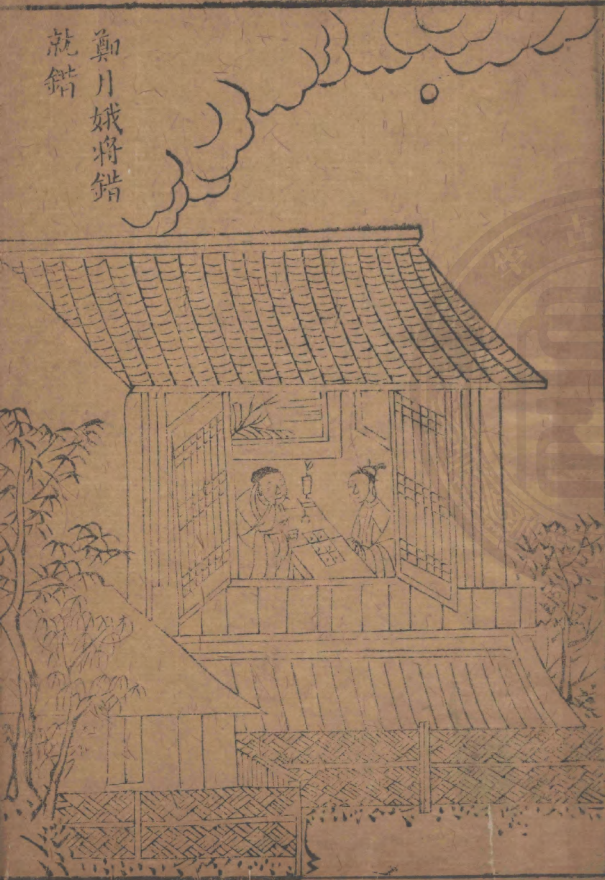 鄭月娥將錯
就錯